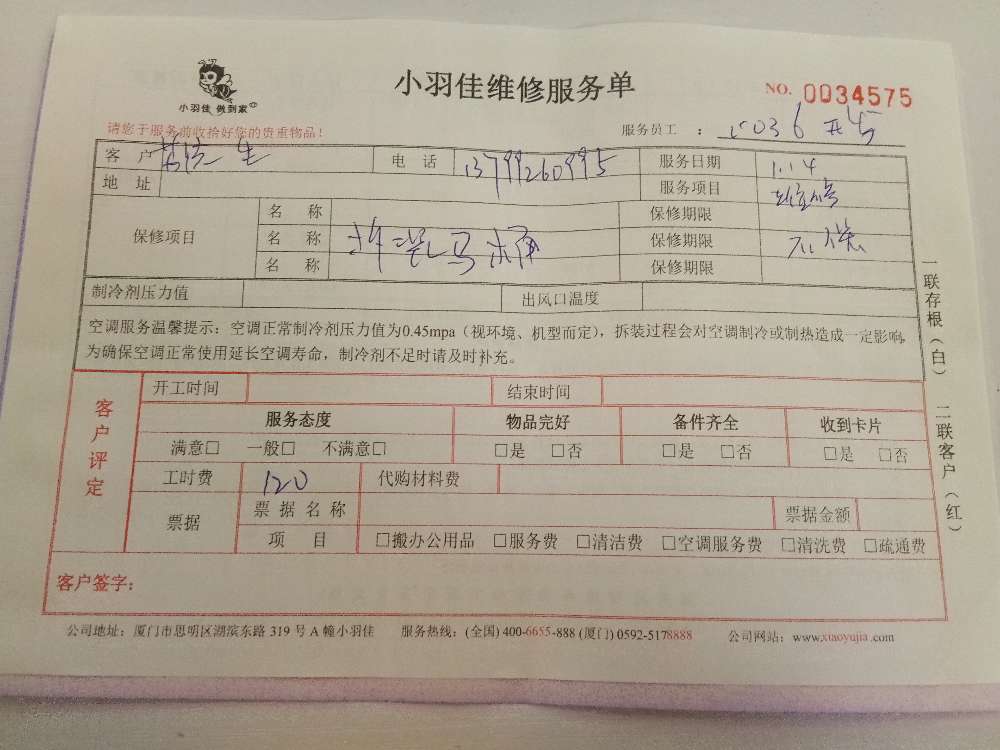 小羽佳 做到家
小羽佳维修服务单
NO. 0034575
请您于服务前收拾好您的贵重物品!
服务员工 : 5036
客 户 生 电 话 13799260995 服务日期 1.14
地 址 服务项目 维修
保修项目
名 称 保修期限
名 称 拆装马桶 保修期限 不保
名 称 保修期限
制冷剂压力值 出风口温度
空调服务温馨提示: 空调正常制冷剂压力值为0.45mpa(视环境、机型而定), 拆装过程会对空调制冷或制热造成一定影响,
为确保空调正常使用延长空调寿命, 制冷剂不足时请及时补充。
客户评定
开工时间 结束时间
服务态度 物品完好 备件齐全 收到卡片
满意□ 一般□ 不满意□ □是 □否 □是 □否 □是 □否
工时费 120 代购材料费
票据
票 据 名 称 票据金额
项 目 □搬办公用品 □服务费 □清洁费 □空调服务费 □清洗费 □疏通费
客户签字:
一联存根(白) 二联客户(红)
公司地址: 厦门市思明区湖滨东路 319 号 A 幢小羽佳 服务热线: (全国) 400-6655-888 (厦门) 0592-5178888 公司网站: www.xiaoyujia.com